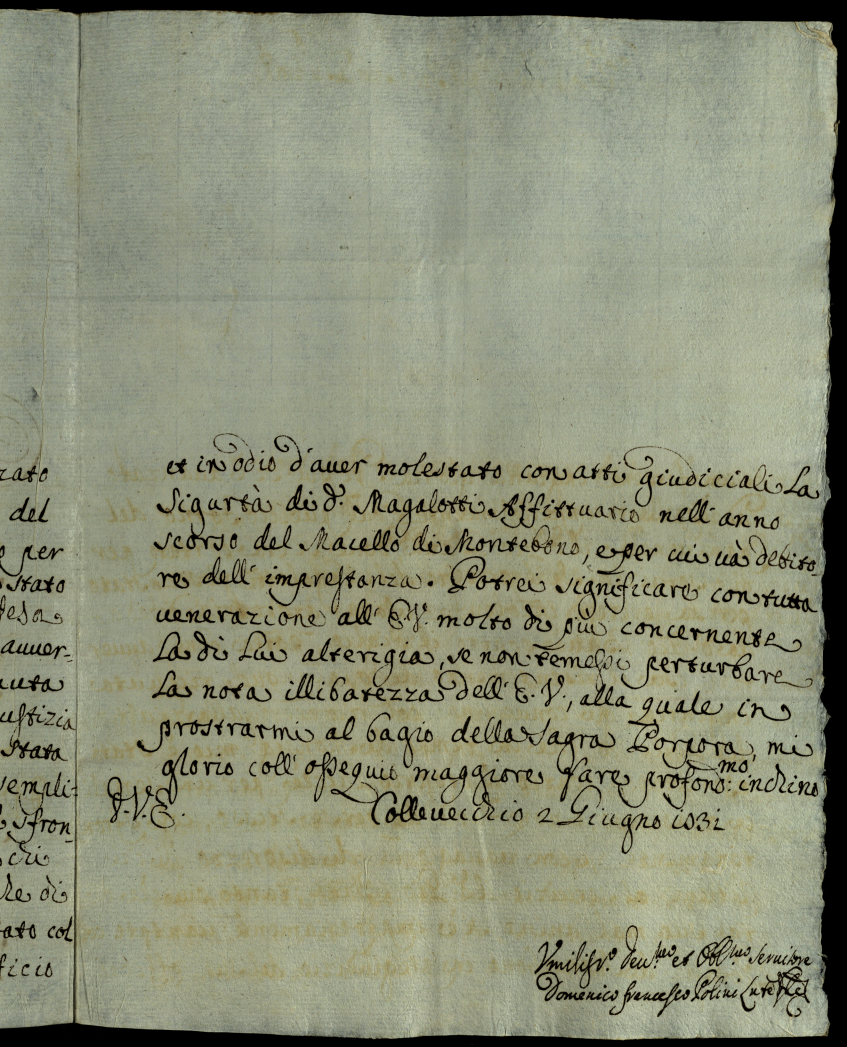 zato
del
o per
stato
tesa
auuer-
auta
ustizia
stata
sempli-
sfron-
chi
he di
tato col
ficio
et in odio d'auer molestato con atti giudiciali La
Sigurtà di d.º Magalotti Affittuario nell'anno
scorso del Macello di Montebono, e per cui uà debito-
re dell'imprestanza. Potrei significare con tutta
uenerazione all'E.V. molto di più concernente
La di Lui alterigia, se non temessi perturbare
La nota illibatezza dell'E.V., alla quale in
prostrarmi al bagio della Sagra Porpora, mi
glorio coll'ossequio maggiore fare profond.mo inchino
D.V.E. Colleuecchio 2 Giugno
Vmiliss.º deu.mo et Obl.mo Seruitore
Domenico Francesco Polini